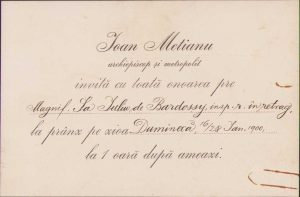 Ioan Mețianu
archiepiscop și metropolit
invită cu toată onoarea pre
Magnif. Sa Iuliu de Bardossy, insp. r. în retrag.
la prânz pe ziua Duminecă, 16/28 Ian. 1900,
la 1 oară după ameazi.